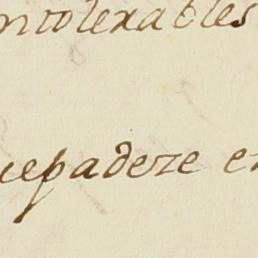 intolerables
cepadeze en